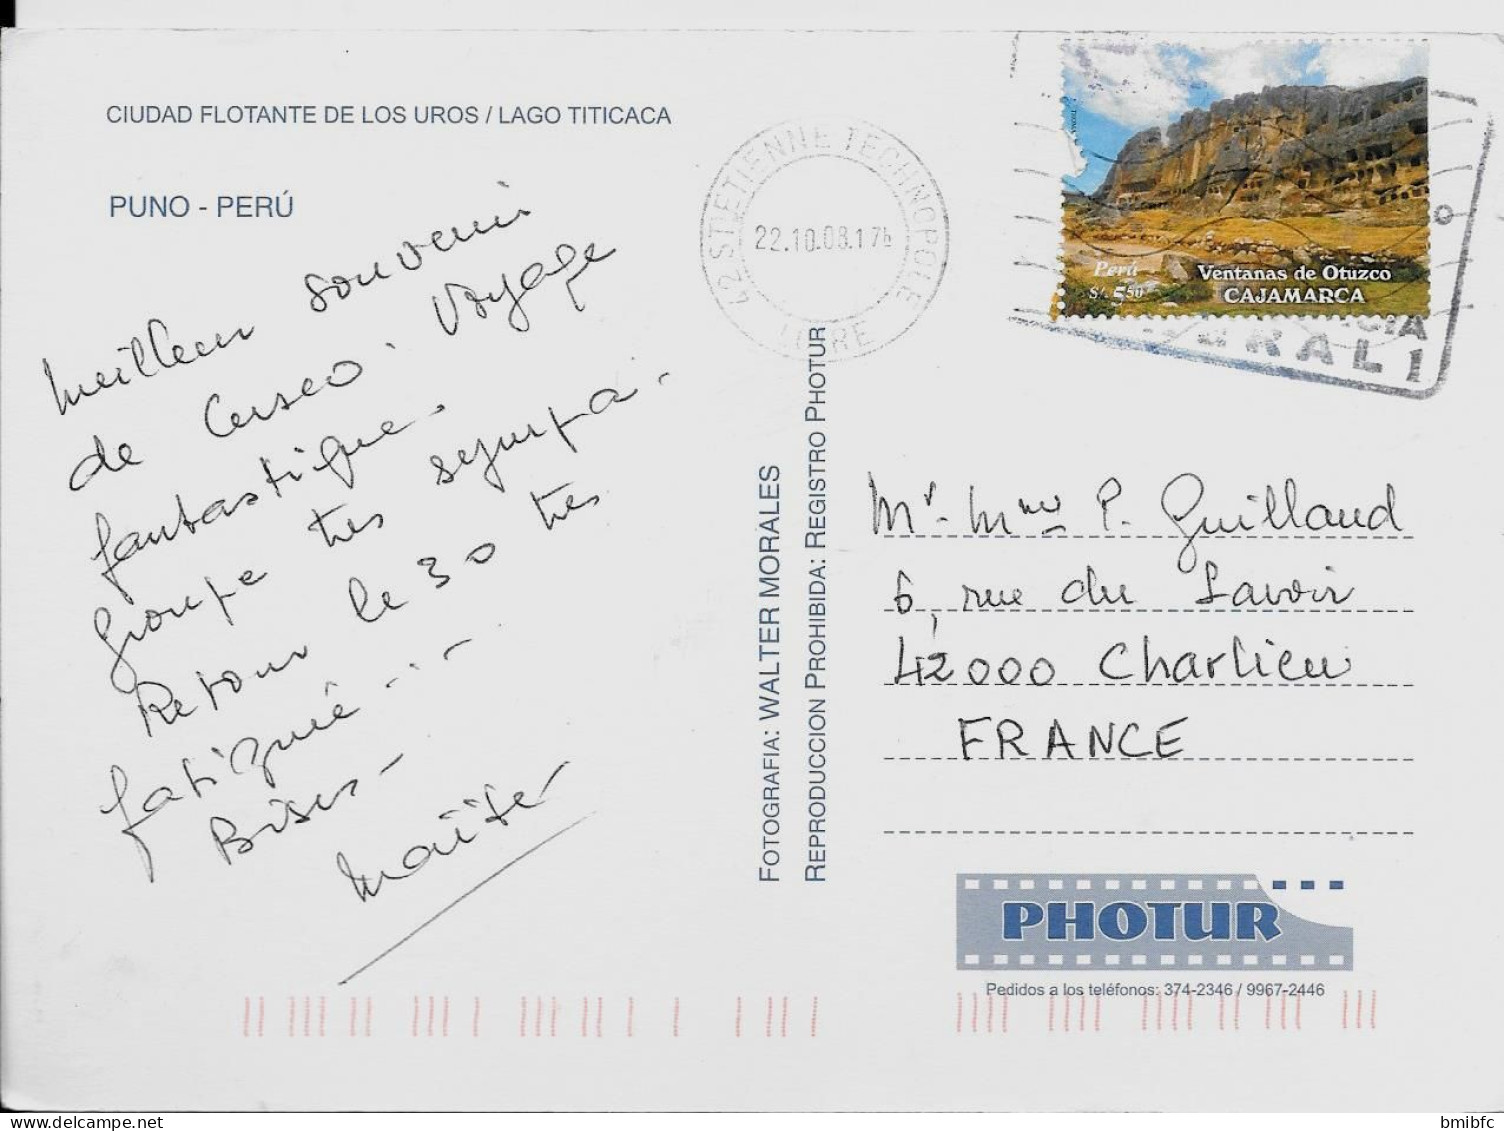 CIUDAD FLOTANTE DE LOS UROS / LAGO TITICACA
PUNO - PERÚ
Meilleur souvenir
de Cusco. Voyage
fantastique.
Groupe très sympa.
Retour le 30 très
fatiguié...
Bises -
Maïté
FOTOGRAFIA: WALTER MORALES
REPRODUCCION PROHIBIDA: REGISTRO PHOTUR
42 ST ETIENNE TECHNOPOLE
22.10.08.17h
LOIRE
Perú
S/. 5.50
Ventanas de Otuzco
CAJAMARCA
Mr. Mme P. Guillaud
6, rue du Lavoir
42000 Charlieu
FRANCE
PHOTUR
Pedidos a los teléfonos: 374-2346 / 9967-2446
bmibfc